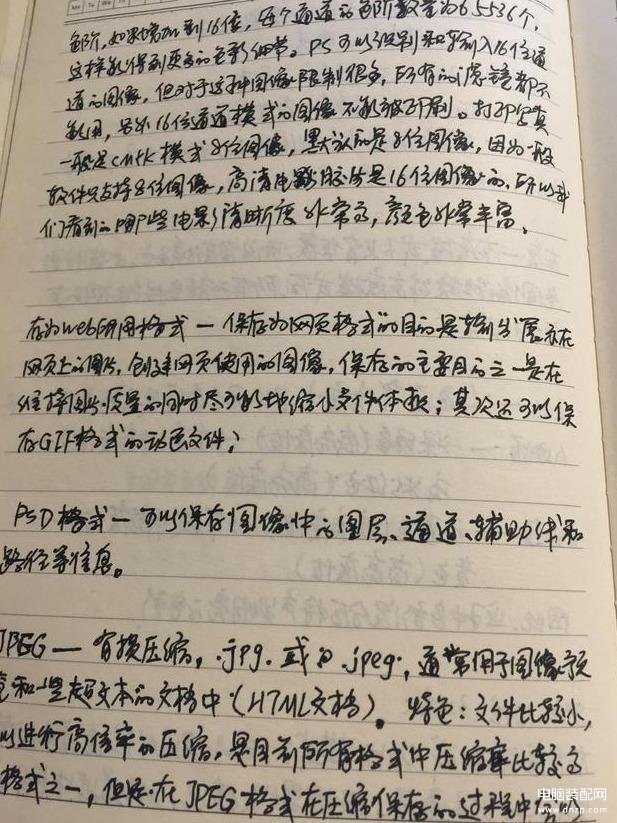 色阶,如果增加到16位,每个通道的色阶数量为65536个,
这样就能得到更多的色彩细节。PS可以识别和输入16位通
道的图像,但对于这种图像限制很多,所有的滤镜都不
能用,另外16位通道模式的图像不能被印刷。打印写真
一般是CMYK模式8位图像,默认的是8位图像,因为一般
软件只支持8位图像,高清电影胶片是16位图像的,所以我
们看到的哪些电影清晰度非常高,颜色非常丰富。
存为web所用格式—保存为网页格式的目的是输出展示在
网页上的图片,创建网页使用的图像,保存的主要目的之一是在
维持图片质量的同时尽可能地缩小文件体积;其次还可以保
存GIF格式的动态文件;
PSD格式—可以保存图像中的图层、通道、辅助线和
路径等信息。
JPEG—有损压缩,.jpg.或为.jpeg.,通常用于图像预
览和一些超文本的文档中(HTML文档)。特色:文件比较小,
以进行高倍率的压缩,是目前所有格式中压缩率比较高
格式之一,但是在JPEG格式在压缩保存的过程中
电脑装配网
www.dnzp.com